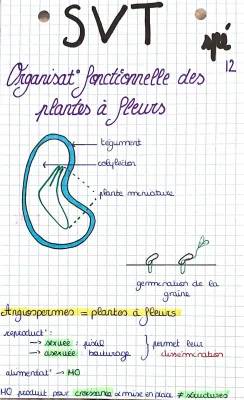 SVT
spé
12
Organisat° fonctionnelle des
plantes à fleurs
tégument
cotylédon
plante miniature
germination de la
graine
Angiospermes = plantes à fleurs
reproduct° :
→ sexuée : pistil
→ asexuée : bouturage
permet leur
dissémination
alimentat° → MO
MO produit pour croissance & mise en place ≠ structures